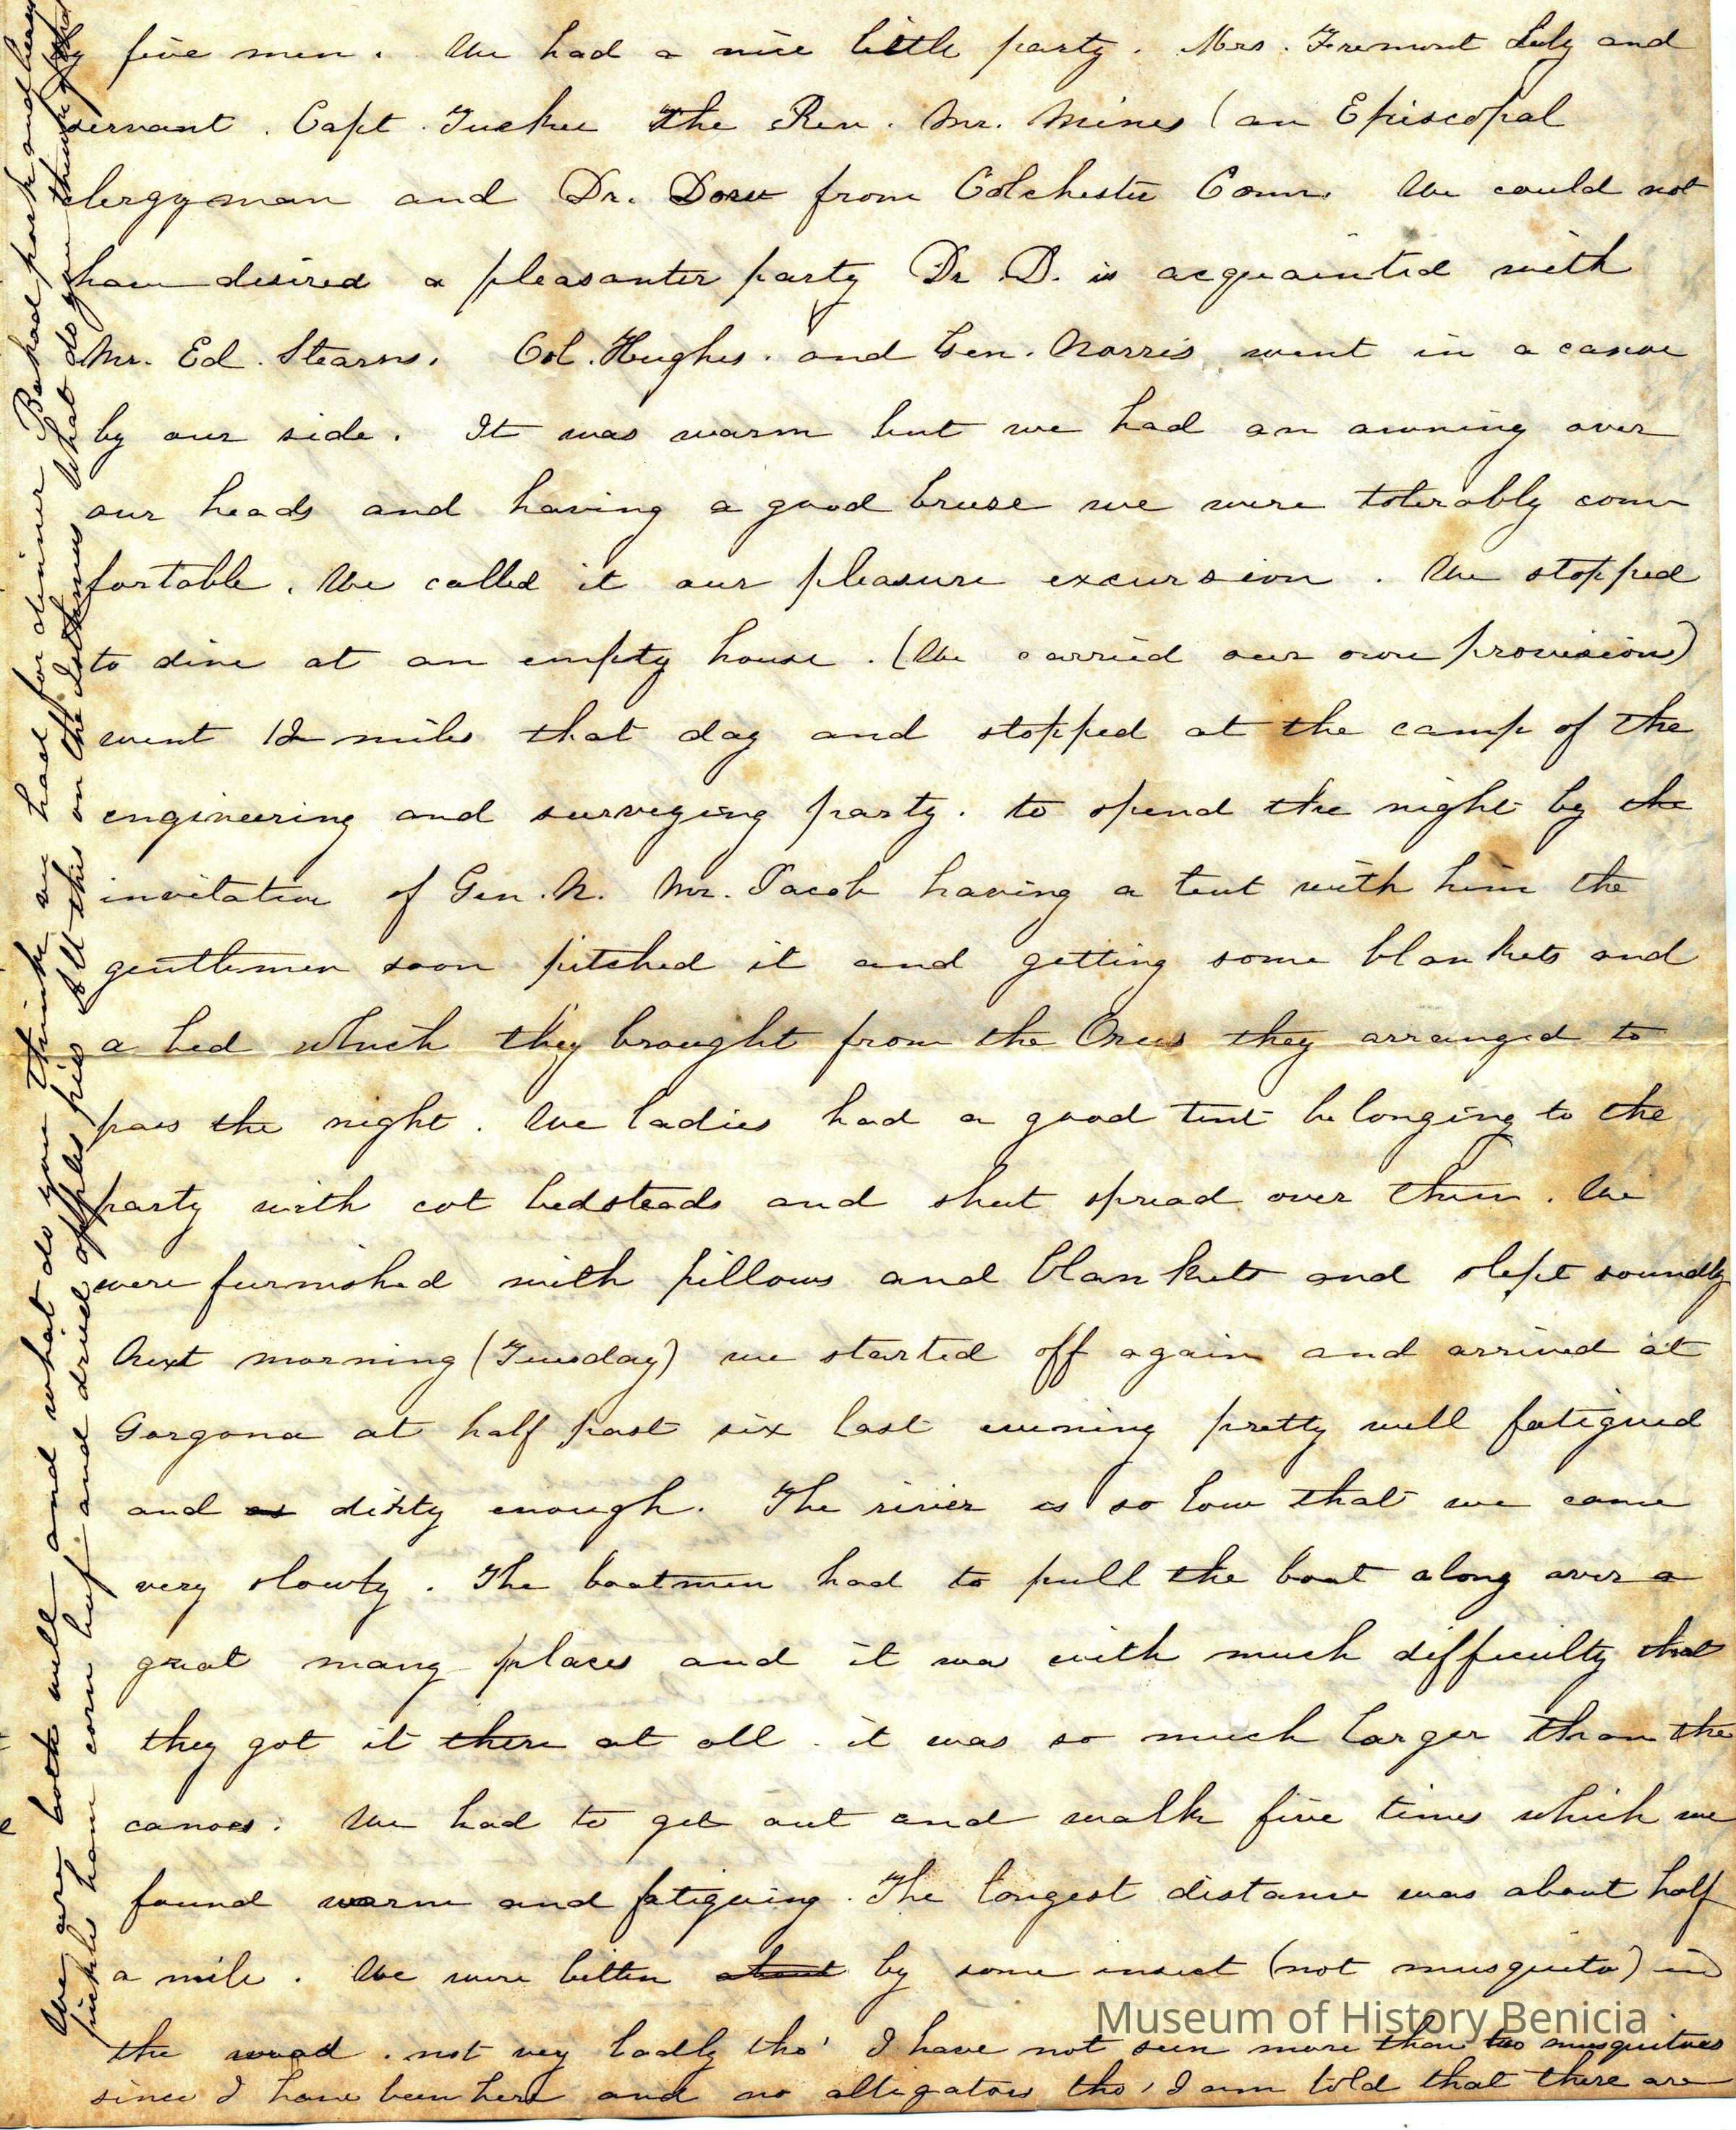 by five men. We had a nice little party. Mrs. Fremont Lily and
servant. Capt. Tucker The Rev. Mr. Mines (an Episcopal
clergyman and Dr. Dow from Colchester Conn. We could not
have desired a pleasanter party Dr D. is acquainted with
Mr. Ed. Stearns. Col. Hughes. and Gen. Norris, went in a canoe
by our side. It was warm but we had an awning over
our heads and having a good breese we were tolerably com
fortable. We called it our pleasure excursion. We stopped
to dine at an empty house. (We carried our own provision)
went 12 miles that day and stopped at the camp of the
engineering and surveying party. to spend the night by the
invitation of Gen. N. Mr. Jacob having a tent with him the
gentlemen soon pitched it and getting some blankets and
a bed which they brought from the Orus they arranged to
pass the night. We ladies had a good tent belonging to the
party with cot bedsteads and sheet spread over them. We
were furnished with pillows and blankets and slept soundly
Next morning (Tuesday) we started off again and arrived at
Gorgona at half past six last evening pretty well fatigued
and as dirty enough. The river is so low that we came
very slowly. The boatmen had to pull the boat along over a
great many places and it was with much difficulty that
they got it there at all. it was so much larger than the
canoes. We had to get out and walk five times which we
found warm and fatiguing. The longest distance was about half
a mile. We were bitten about by some insect (not musquito) in
the wood. not very badly tho' I have not seen more than two musquitoes
since I have been here and no alligators tho, I am told that there are
We are both well and what do you think we had for dinner Baked pork and beans
pickles ham corn beef and dried apples pies All this on the Isthmus What do you think of that
Museum of History Benicia